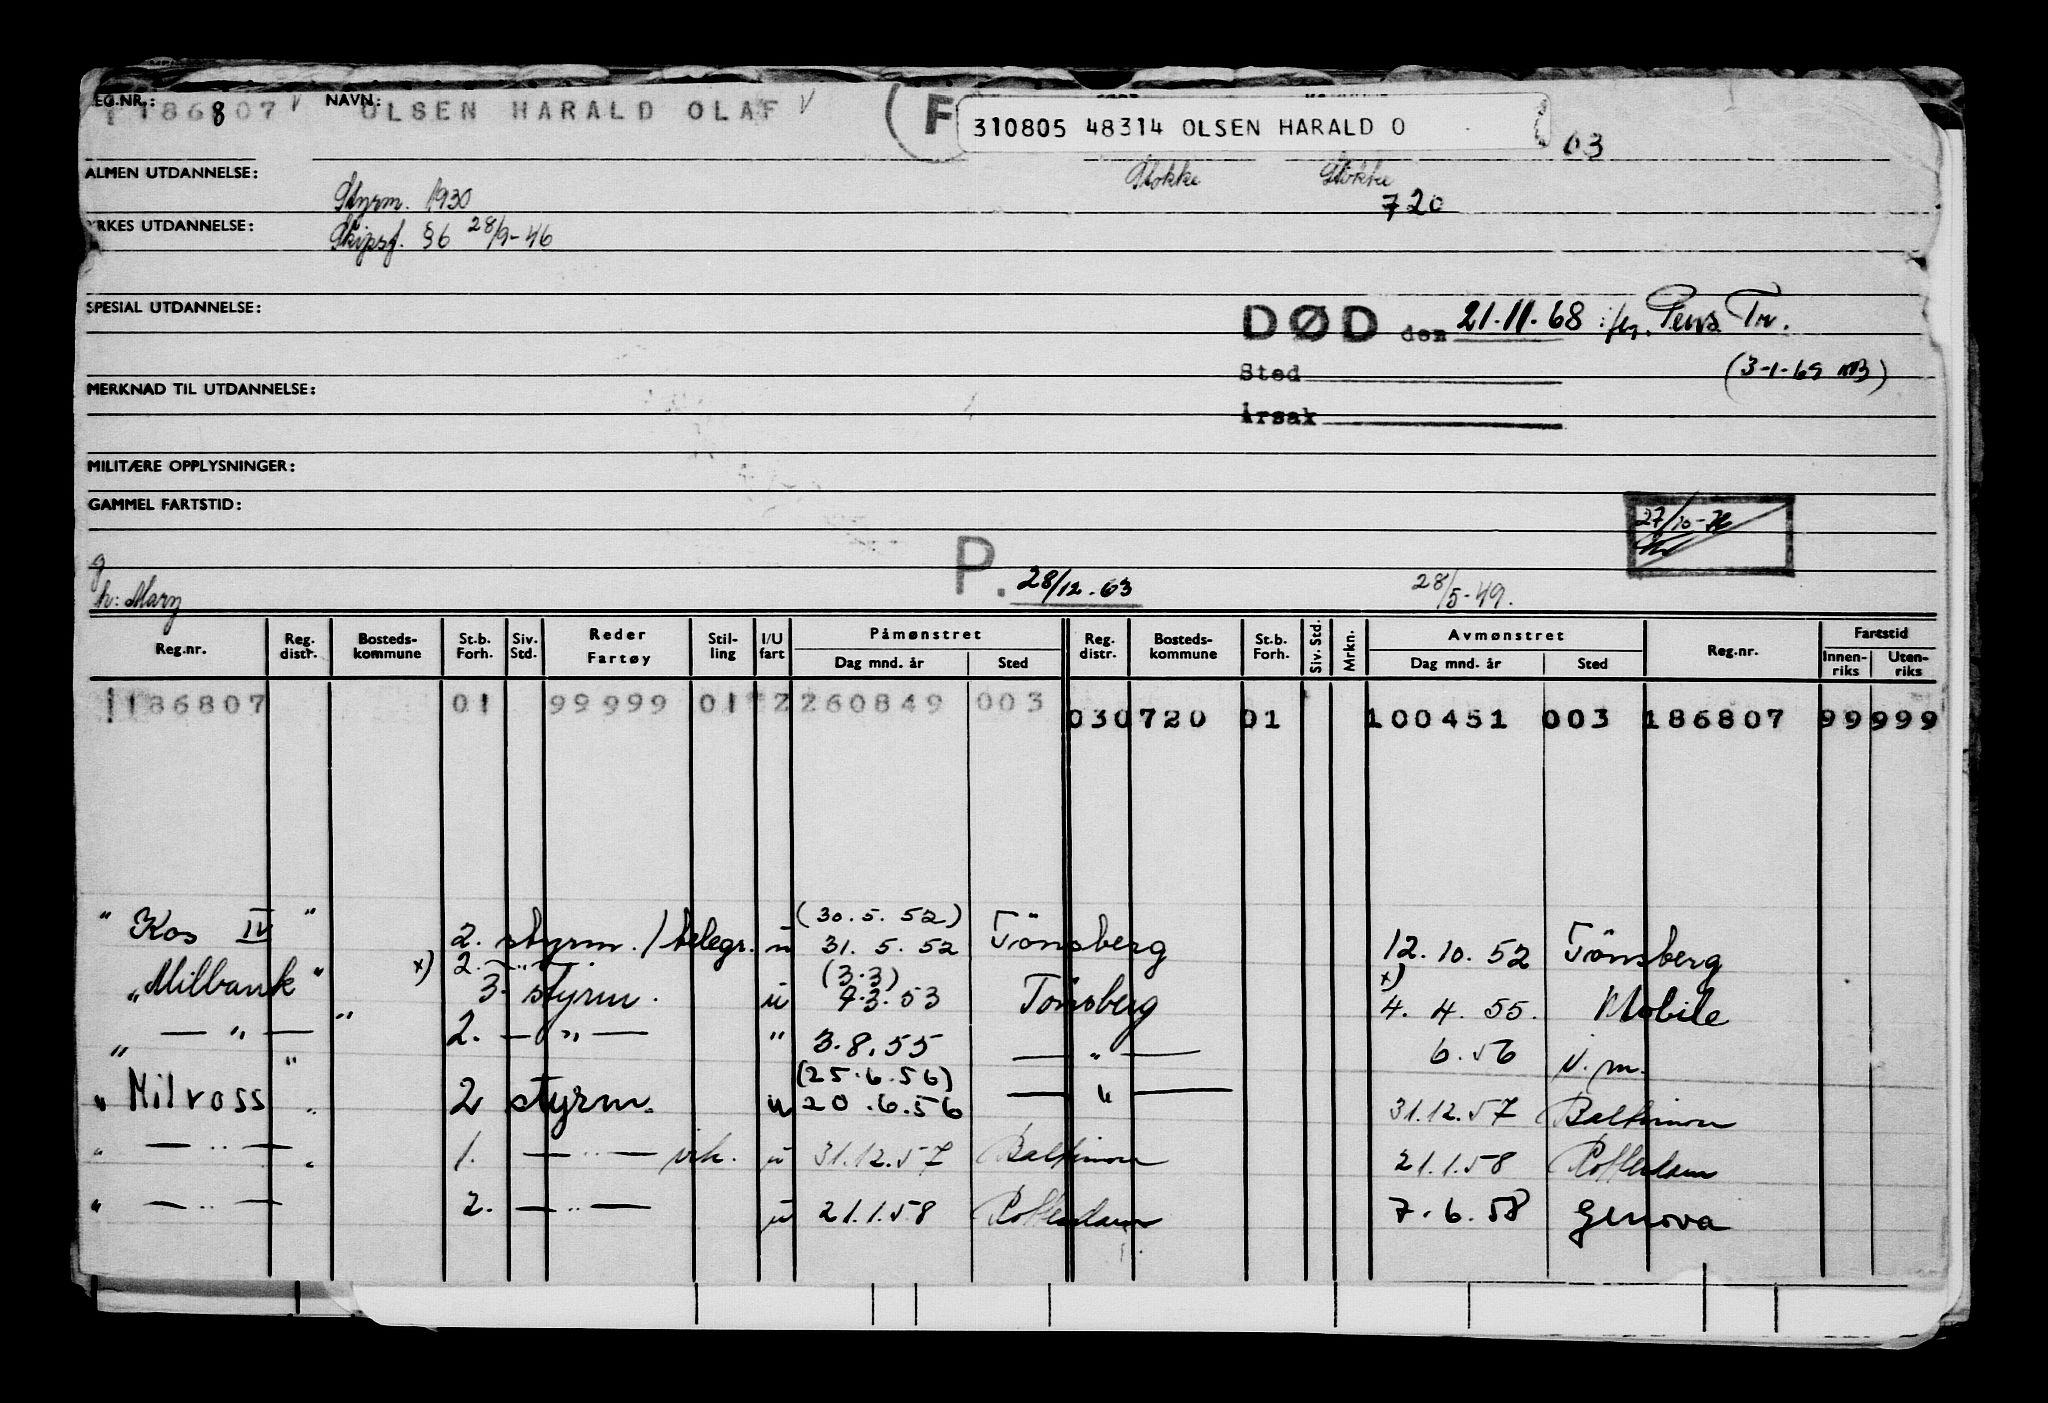 REG.NR.: 186807 NAVN: OLSEN HARALD OLAF
F 310805 48314 OLSEN HARALD O
03
ALMEN UTDANNELSE: Stokke Stokke
Styrm. 1930 720
YRKES UTDANNELSE: Skipsf. §6 28/9-46
SPESIAL UTDANNELSE:
DØD den 21.11.68 Pens. Tr.
Sted (3-1-69
MERKNAD TIL UTDANNELSE:
Årsak
MILITÆRE OPPLYSNINGER:
GAMMEL FARTSTID:
27/10-72
g
h: Mary P. 28/12.63 28/5-49.
Reg.nr. Reg. distr. Bosteds-kommune St.b. Forh. Siv. Std. Reder Fartøy Stil-ling I/U fart Påmønstret Dag mnd. år Sted Reg. distr. Bosteds-kommune St.b. Forh. Siv. Std. Mrkn. Avmønstret Dag mnd. år Sted Reg.nr. Fartstid Innen-riks Uten-riks
186807 01 99999 01 2 260849 003 030720 01 100451 003 186807 99999
(30.5.52)
"Kos IV" 2. styrm./telegr. u 31.5.52 Tönsberg 12.10.52 Tönsberg
x) 2. — " — (3.3) x)
"Milbank" 3. styrm. u 7.3.53 Tönsberg 4.4.55. Mobile
" — " — " 2. — " — " 3.8.55 — " — 6.56 u.m.
(25.6.56)
"Milross" 2 styrm. u 20.6.56 — " — 31.12.57 Baltimore
" — " — " 1. — " — vik. u 31.12.57 Baltimore 21.1.58 Rotterdam
" — " — 2. — " — u 21.1.58 Rotterdam 7.6.58 Genova